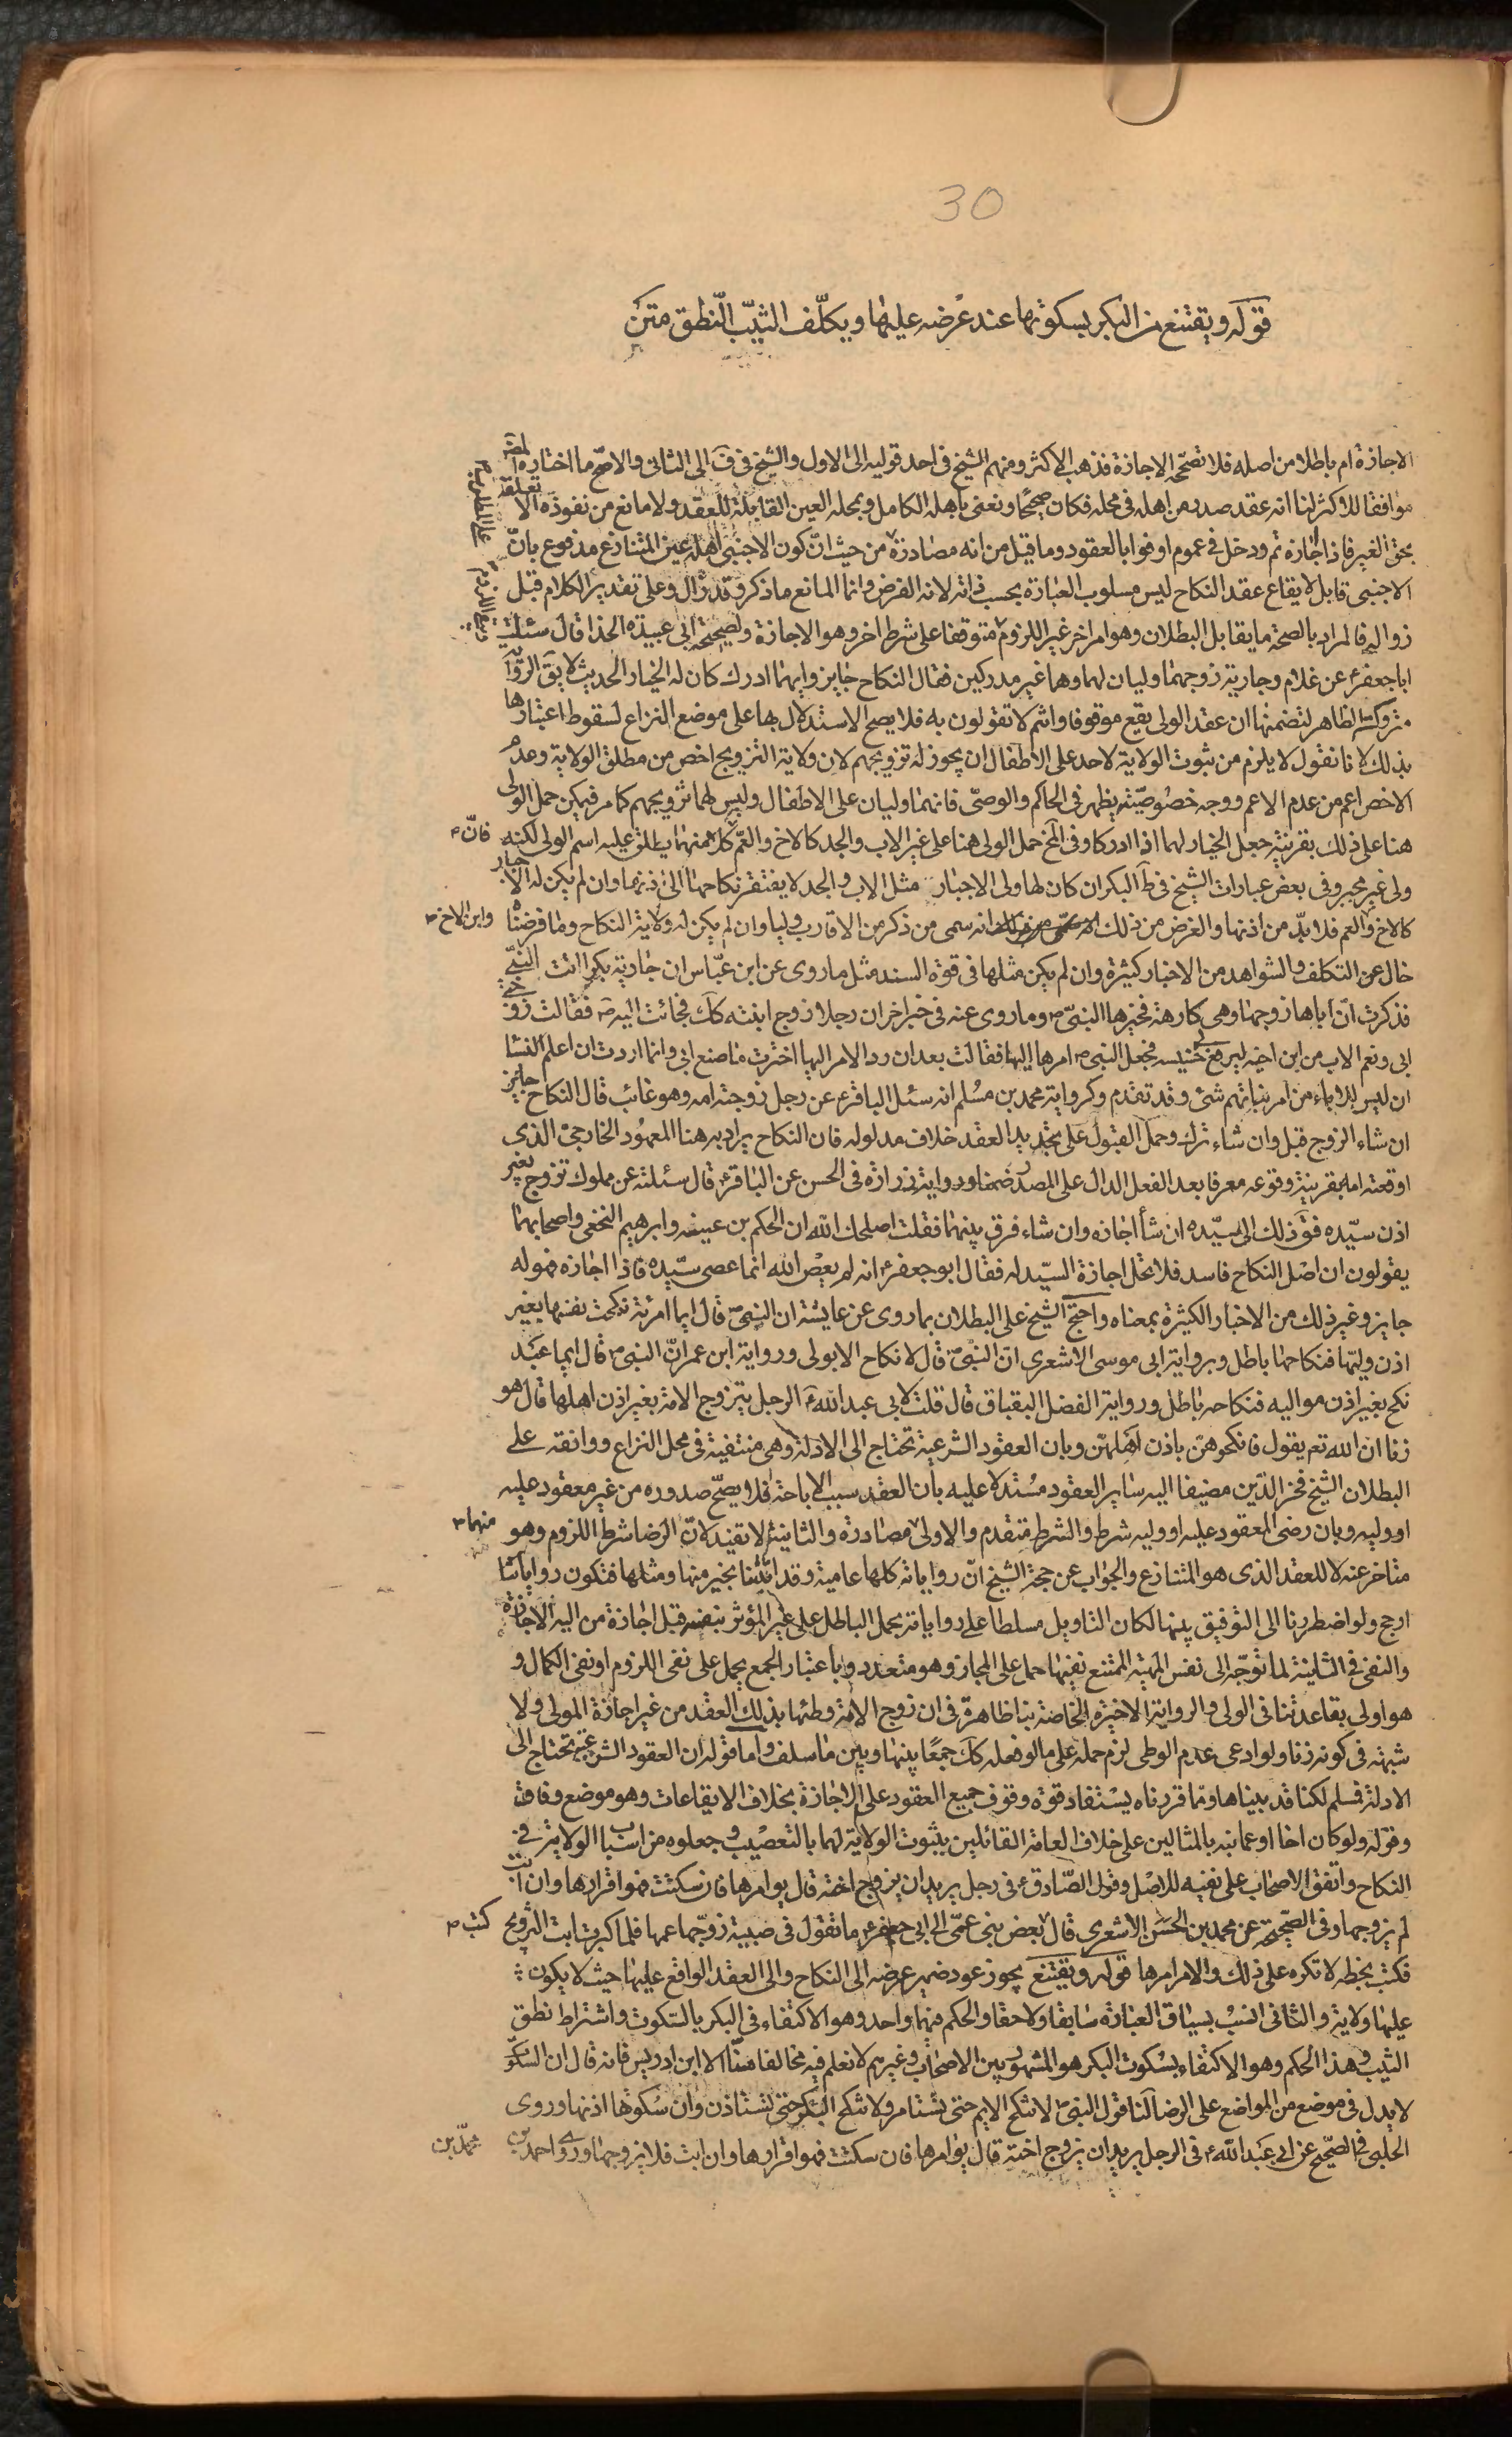 30
قوله ويقتنع من البكر بسكوتها عند عرضه عليها ويكلّف الثيّب النّطق متن
الاجازة ام باطلا من اصله فلا تصحّحه الاجازة فذهب الاكثر ومنهم الشيخ في احد قوليه الى الاول والشيخ في ف الى الثانى والاصحّ ما اختاره المصر
موافقا للاكثر لنا انه عقد صدر من اهله فى محله فكان صحيحًا ونعنى باهله الكامل وبمحله العين القابلة للعقد ولا مانع من نفوذه الا تعلقه
بحق الغير فاذا اجازه تم ودخل فى عموم اوفوا بالعقود وما قيل من انه مصادرة من حيث انّ كون الاجنبى اهله عين المتنازع مدفوع بانّ
الاجنبى قابل لايقاع عقد النكاح ليس مسلوب العبارة بحسب ذاته لانه الفرض وانما المانع ما ذكر وقد زال وعلى تقدير الكلام قبل
زواله فالمراد بالصحة ما يقابل البطلان وهو امر اخر غير اللزوم متوقفا على شرط اخر وهو الاجازة ولصحيحة ابى عبيدة الحذا قال سئلت
ابا جعفر ع عن غلام وجارية زوجهما وليان لهما وهما غير مدركين فقال النكاح جايز وايهما ادرك كان له الخيار الحديث لا يق الرواية
متروكة الظاهر لتضمنها ان عقد الولى يقع موقوفا وانتم لا تقولون به فلا يصح الاستدلال بها على موضع النزاع لسقوط اعتبارها
بذلك لانا نقول لا يلزم من ثبوت الولاية لاحد على الاطفال ان يجوز له تزويجهم لان ولاية التزويج اخص من مطلق الولاية وعدم
الاخص اعم من عدم الاعم ووجه خصوصيّته يظهر فى الحاكم والوصىّ فانهما وليان على الاطفال وليس لهما تزويجهم كما مر فيمكن حمل الولى
هنا على ذلك بقرينة جعل الخيار لهما اذا ادركا وفى لخ حمل الولى هنا على غير الاب والجد كالاخ والعمّ كلا منهما يطلق عليه اسم الولى لكنه فانّ
ولى غير مجبر وفى بعض عبارات الشيخ فى ط البكر ان كان لها ولى الاجبار مثل الاب والجد لا يفتقر نكاحها الى اذنها وان لم يكن له الاجبار
كالاخ والعم فلا بدّ من اذنها والغرض من ذلك انه سمى من ذكر من الاقارب وليا وان لم يكن له ولاية النكاح وما فرضناه وابن الاخ
خال عن التكلف والشواهد من الاخبار كثيرة وان لم يكن مثلها فى قوة السند مثل ما روى عن ابن عبّاس ان جارية بكرا اتت النبى
فذكرت انّ اباها زوجها وهى كارهة فخيرها النبىّ ص وما روى عنه فى خبر اخر ان رجلا زوج ابنته كك فجائت اليه ص فقالت زوجنى
ابى ونعم الاب من ابن اخيه ليرفع خسيسه فجعل النبى ص امرها اليها فقالت بعد ان رد الامر اليها اخترت ما صنع ابى وانما اردت ان اعلم النسا
ان ليس للاباء من امر بناتهم شئ وقد تقدم وكرواية محمد بن مسلم انه سئل الباقر ع عن رجل زوجته امه وهو غائب قال النكاح جايز
ان شاء الزوج قبل وان شاء ترك وحمل القبول على تجديد العقد خلاف مدلوله فان النكاح يراد به هنا المعهود الخارجى الذى
اوقعته امه بقرينة وقوعه معرفا بعد الفعل الدال على المصدر ضمنا ورواية زرارة فى الحسن عن الباقر ع قال سئلته عن مملوك تزوج بغير
اذن سيّده فق ذلك الى سيّده ان شأ اجازه وان شاء فرق بينهما فقلت اصلحك الله ان الحكم بن عيينه وابرهيم النخعى واصحابهما
يقولون ان اصل النكاح فاسد فلا تحل اجازة السيّد له فقال ابو جعفر ع انه لم يعص الله انما عصى سيّده فاذا اجازه فهو له
جايز وغير ذلك من الاخبار الكثيرة بمعناه واحتج الشيخ على البطلان بما روى عن عايشة ان النبى ص قال ايما امرئة نكحت نفسها بغير
اذن وليها فنكاحها باطل وبرواية ابى موسى الاشعرى انّ النبى ص قال لا نكاح الا بولى ورواية ابن عمر انّ النبى ص قال ايما عبد
نكح بغير اذن مواليه فنكاحه باطل ورواية الفضل البقباق قال قلت لابى عبد الله ع الرجل يتزوج الامة بغير اذن اهلها قال هو
زنا ان الله تع يقول فانكحوهنّ باذن اهلهنّ وبان العقود الشرعية تحتاج الى الادلة وهى منتفية فى محل النزاع ووافقه على
البطلان الشيخ فخر الدّين مضيفا اليه ساير العقود مستدلا عليه بان العقد سبب الاباحة فلا يصحّ صدوره من غير معقود عليه
او وليه وبان رضى المعقود عليه او وليه شرط والشرط متقدم والاولى مصادرة والثانية لا تفيد لانّ الرضا شرط اللزوم وهو منهما
متاخر عنه لا للعقد الذى هو المتنازع والجواب عن حجة الشيخ انّ رواياته كلها عامية وقد اتيتنا بخير منها ومثلها فتكون رواياتنا
ارجح ولو اضطررنا الى التوفيق بينها لكان التاويل مسلطا على رواياته بحمل الباطل على غير المؤثر بنفسه قبل اجازة من اليه الاجازة
والنفى فى الثانية لما توجّه الى نفس المهية الممتنع نفيها حمل على المجاز وهو متعدد وباعتبار الجمع يحمل على نفى اللزوم او نفى الكمال و
هو اولى بقاعدتنا فى الولى والرواية الاخيرة الخاصة بنا ظاهرة فى ان زوج الامة وطئها بذلك العقد من غير اجازة المولى ولا
شبهة فى كونه زنا ولو ادعى عدم الوطى لزم حمله على ما لو فعله كك جمعًا بينها وبين ما سلف واما قوله ان العقود الشرعية تحتاج الى
الادلة فسلم لكنا قد بيناها ومما قررناه يستفاد قوة وقوف جميع العقود على الاجازة بخلاف الايقاعات وهو موضع وفاق
وقوله ولو كان اخا او عما نبه بالمثالين على خلاف العامة القائلين بثبوت الولاية لهما بالتعصيب وجعلوه من اسباب الولاية فى
النكاح واتفق الاصحاب على نفيه للاصل وقول الصّادق ع فى رجل يريد ان يزوج اخته قال يوامرها فان سكتت فهو اقرارها وان ابت
لم يزوجها وفى الصّحيحة عن محمد بن الحسن الاشعرى قال بعض بنى عمّى الى ابى جعفر ع ما تقول فى صبية زوّجها عمها فلما كبرت ابت التزويج كتب
فكتب بخطه لا تكره على ذلك والامر امرها قوله ويقتنع يجوز عود ضمير عرضه الى النكاح والى العقد الواقع عليها حيث لا يكون
عليها ولاية والثانى انسب بسياق العبارة سابقا ولاحقا والحكم فيهما واحد وهو الاكتفاء فى البكر بالسّكوت واشتراط نطق
الثيب وهذا الحكم وهو الاكتفاء بسكوت البكر هو المشهور بين الاصحاب وغيرهم لا نعلم فيه مخالفا منّا الا ابن ادريس فانه قال ان السكوت
لا يدل فى موضع من المواضع على الرضا لنا قول النبى ص لا تنكح الايم حتى تستامر ولا تنكح البكر حتى تستاذن وان سكوتها اذنها وروى
الحلبى فى الصّحيح عن ابى عبد الله ع فى الرجل يريد ان يزوج اخته قال يوامرها فان سكتت فهو اقرارها وان ابت فلا يزوجها وروى احمد بن محمّد بن